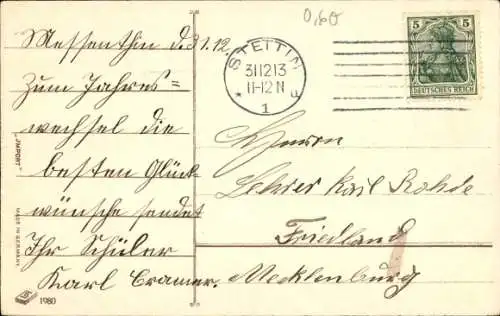 0,60
Messenthin d. 31.12.
Zum Jahres=
wechsel die
besten Glück=
wünsche sendet
Ihr Schüler
Karl Cramer.
STETTIN
31 12 13
11-12 N
* 1
5 5
DEUTSCHES REICH
Herrn
Lehrer Karl Rohde
Friedland
Mecklenburg
"IMPORT"
MADE IN GERMANY
1980